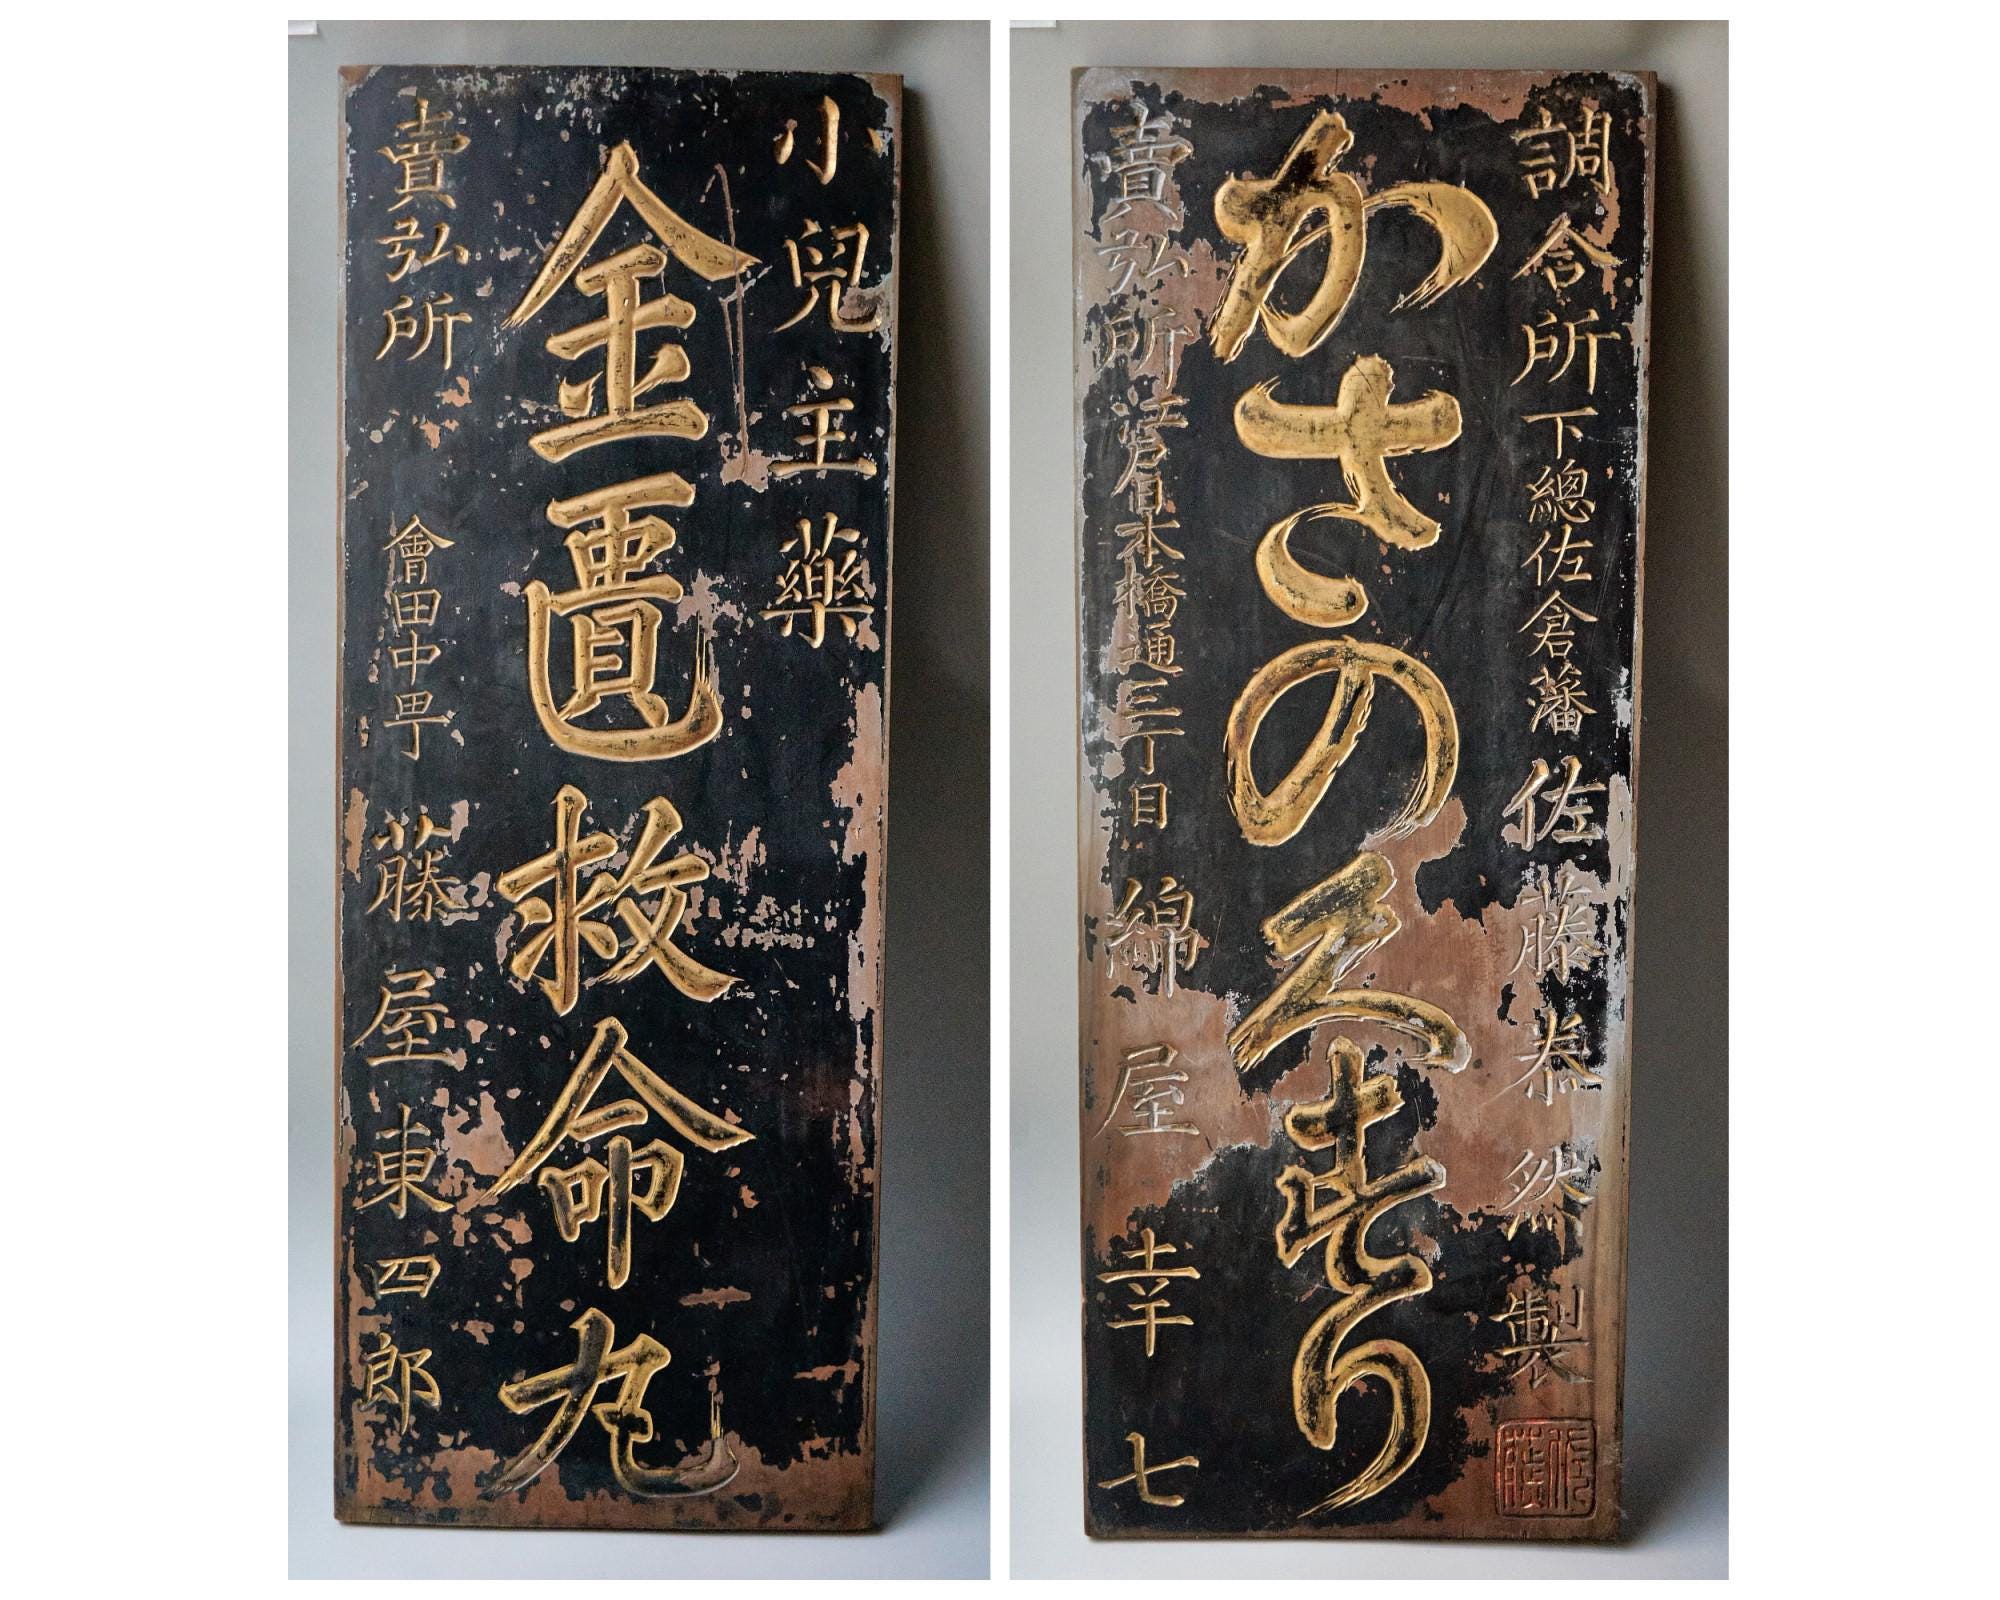 小兒主藥
金匱救命丸
賣弘所 會田中甼 藤屋東四郎
調合所 下總佐倉藩 佐藤泰然製
佐藤
かさのくすり
賣弘所 江戸日本橋通三丁目 綿屋幸七